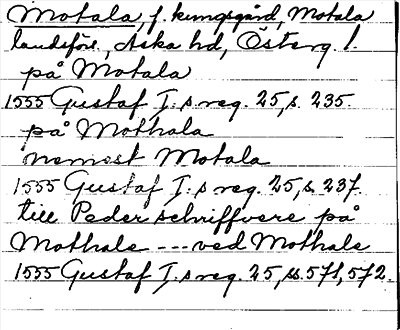 Motala, f. kungsgård, Motala
landsförs., Aska hd, Österg. l.
på Motala
1555 Gustaf I:s reg. 25, s. 235.
på Mothala
nemest Motala
1555 Gustaf I:s reg. 25, s. 237.
till Peder schriffvere på
Mothale --- ved Mothale
1555 Gustaf I:s reg. 25, ss. 571, 572.